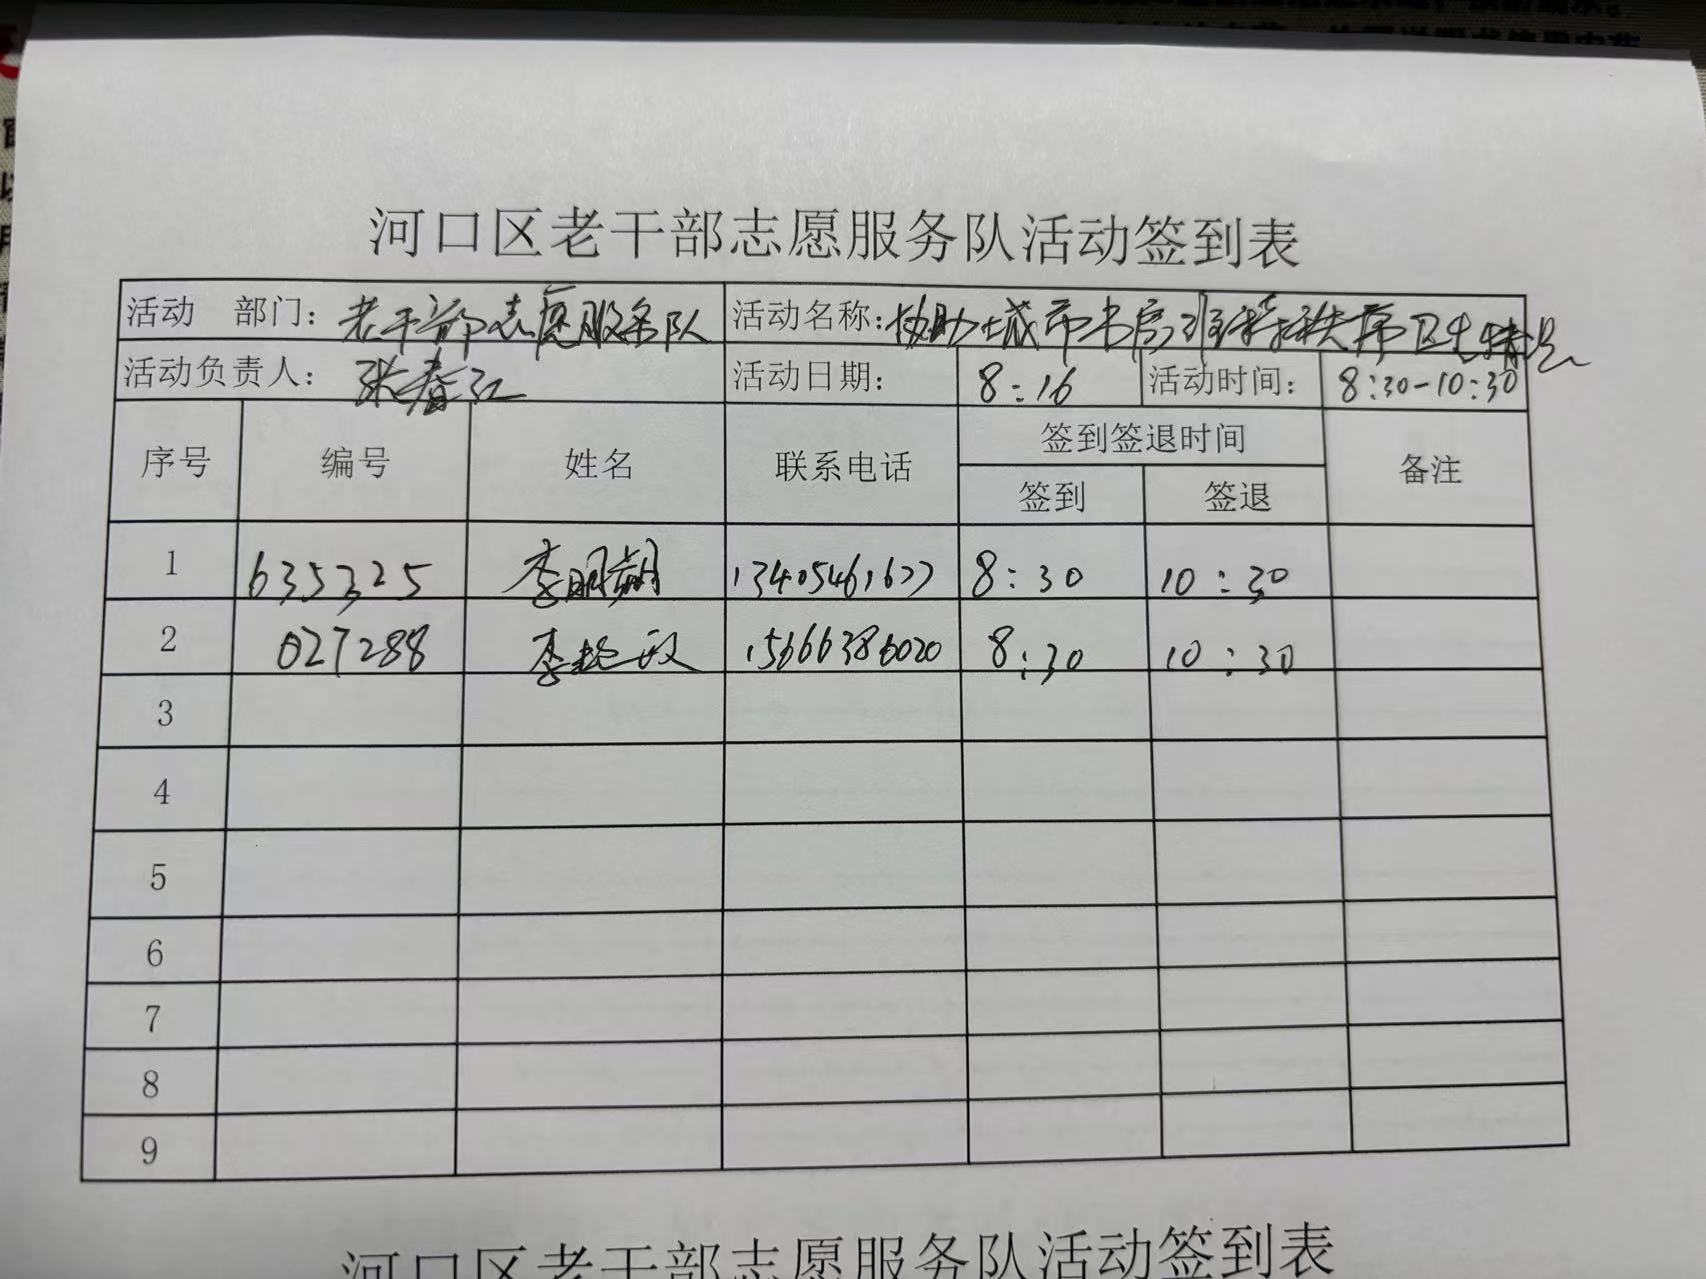 河口区老干部志愿服务队活动签到表
活动 部门: 老干部志愿服务队 活动名称: 协助城市书房维持秩序卫生
活动负责人: 张春江 活动日期: 8:16 活动时间: 8:30-10:30
序号 编号 姓名 联系电话 签到签退时间 备注
签到 签退
1 635325 李明 13405461677 8:30 10:30
2 027288 李 15666386020 8:30 10:30
3
4
5
6
7
8
9
河口区老干部志愿服务队活动签到表